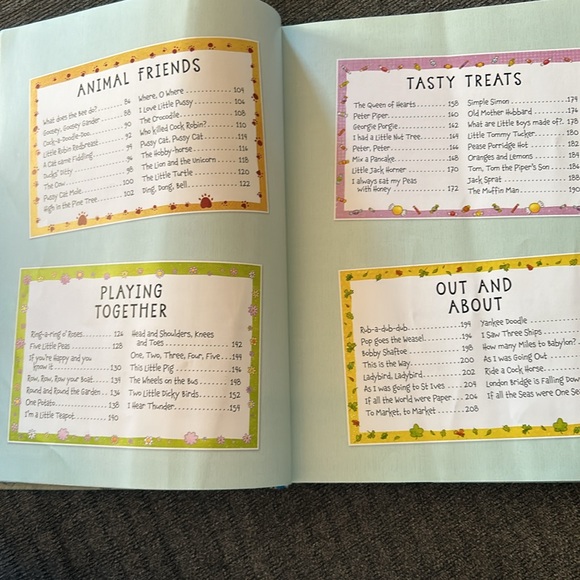 ANIMAL FRIENDS
What does the Bee do? 86
Goosey, Goosey Gander 88
Cock-a-Doodle-Doo 90
Little Robin Redbreast 92
A Cat came Fiddling 94
Ducks' Ditty 96
The Cow 98
Pussy Cat Mole 100
High in the Pine Tree 102
Where, O Where 104
I Love Little Pussy 106
The Crocodile 108
Who killed Cock Robin? 110
Pussy Cat, Pussy Cat 114
The Hobby-horse 116
The Lion and the Unicorn 118
The Little Turtle 120
Ding, Dong, Bell 122
PLAYING
TOGETHER
Ring-a-ring o' Roses 126
Five Little Peas 128
If you're Happy and you
Know it 130
Row, Row, Row your Boat 134
Round and Round the Garden 136
One Potato 138
I'm a Little Teapot 140
Head and Shoulders, Knees
and Toes 142
One, Two, Three, Four, Five 144
This Little Pig 146
The Wheels on the Bus 148
Two Little Dicky Birds 152
I Hear Thunder 154
TASTY TREATS
The Queen of Hearts 158
Peter Piper 160
Georgie Porgie 162
I had a Little Nut Tree 164
Peter, Peter 166
Mix a Pancake 168
Little Jack Horner 170
I always eat my Peas
with Honey 172
Simple Simon 174
Old Mother Hubbard 176
What are Little Boys made of? 178
Little Tommy Tucker 180
Pease Porridge Hot 182
Oranges and Lemons 184
Tom, Tom the Piper's Son 186
Jack Sprat 188
The Muffin Man 190
OUT AND
ABOUT
Rub-a-dub-dub 194
Pop goes the Weasel 196
Bobby Shaftoe 198
This is the Way 200
Ladybird, Ladybird 202
As I was going to St Ives 204
If all the World were Paper 206
To Market, to Market 208
Yankee Doodle
I Saw Three Ships
How many Miles to Babylon?
As I was Going Out
Ride a Cock Horse
London Bridge is Falling Down
If all the Seas were One Sea